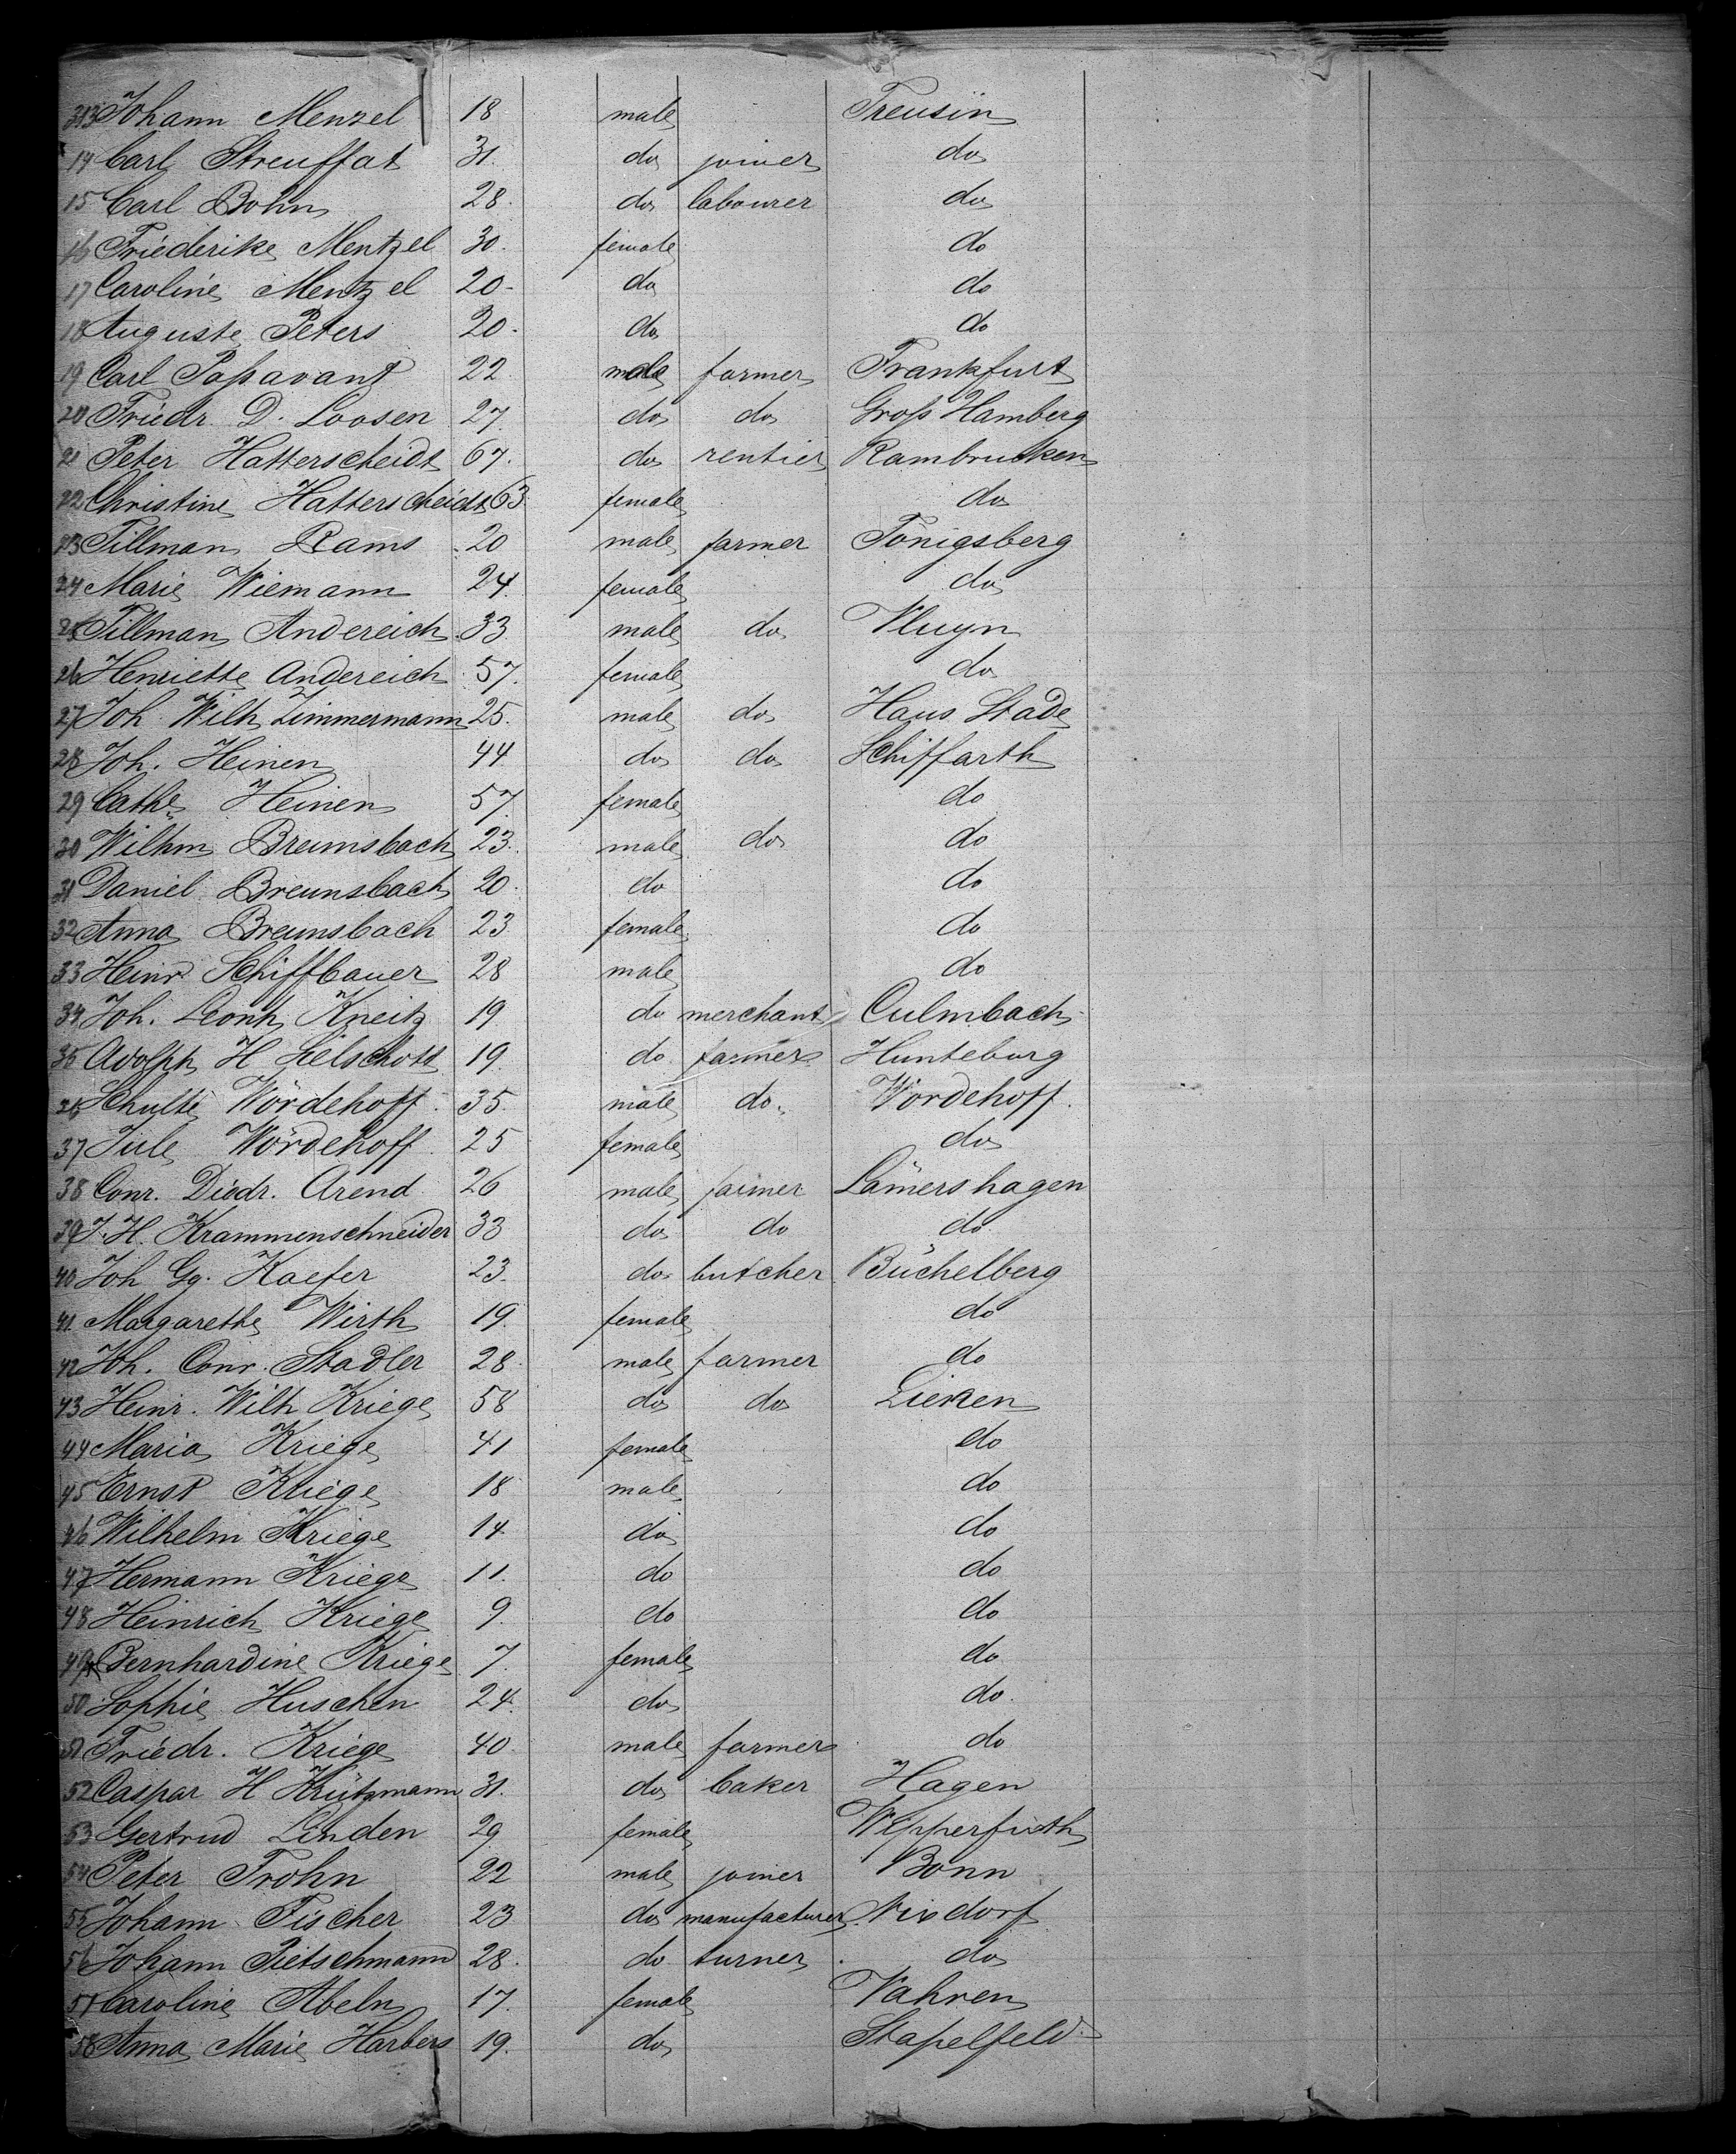 313 Johann Menzel 18 male Treusin
14 Carl Streuffat 31. do joiner do
15 Carl Bohn 28. do labourer do
16 Friederike Mentzel 30. female do
17 Caroline Mentzel 20- do do
18 Auguste Peters 20. do do
19 Carl Paßavant 22 male farmer Frankfurt
20 Friedr. D. Loosen 27. do do Groß Hamberg
21 Peter Hatterscheidt 67. do rentier Rambrucken
22 Christine Hatterscheidt 63 female do
23 Tillman Rams 20 male farmer Tönigsberg
24 Marie Wiemann 24. female do
25 Tillman Andereich 33 male do Vluyn
26 Henriette Andereich 57. female do
27 Joh. Wilh. Zimmermann 25. male do Haus Stade
28 Joh. Heinen 44 do do Schiffarth
29 Cathe Heinen 57. female do
30 Wilhm Breunsbach 23. male do do
31 Daniel Breunsbach 20. do do
32 Anna Breunsbach 23 female do
33 Heinr Schiffbauer 28 male do
34 Joh. Leonh Kneitz 19 do merchant Culmbach
35 Adolph H Sielschott 19. do farmer Hunteburg
36 Schulte Wördehoff 35. male do. Wördehoff.
37 Jule Wördehoff 25 female do
38 Conr. Diedr. Arend 26 male farmer Lämershagen
39 J. H. Krammenschneider 33 do do do
40 Joh Gg. Kaefer 23. do butcher Büchelberg
41. Margarethe Wirth 19. female do
42 Joh. Conr. Stadler 28. male farmer do
43 Heinr. Wilh Kriege 58 do do Lienen
44 Maria Kriege 41 female do
45 Ernst Kriege 18 male do
46 Wilhelm Kriege 14. do do
47 Hermann Kriege 11. do do
48 Heinrich Kriege 9. do do
49 Bernhardine Kriege 7. female do
50 Sophie Huschen 24. do do.
51 Friedr. Kriege 40. male farmer do
52 Caspar H Krützmann 31. do baker Hagen
53 Gertrud Linden 29 female Wipperfürth
54 Peter Frohn 22 male joiner Bonn
55 Johann Fischer 23 do manufacturer Nixdorf
56 Johann Pietschmann 28. do turner do
57 Caroline Abeln 17. female Vahren
58 Anna Marie Harbers 19. do Stapelfeld